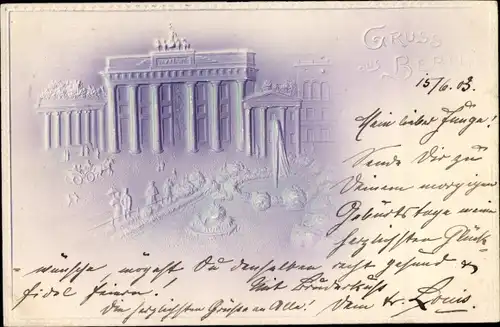 GRUSS
AUS BERLIN
15/6.03.
Mein lieber Junge!
Sende Dir zu
Deinem morgigen
Geburtstage meine
herzlichsten Glück-
wünsche, mögest Du denselben recht gesund &
fidel feiern! Mit Bruderkuss
Die herzlichsten Grüße an Alle! Dein tr. Louis.